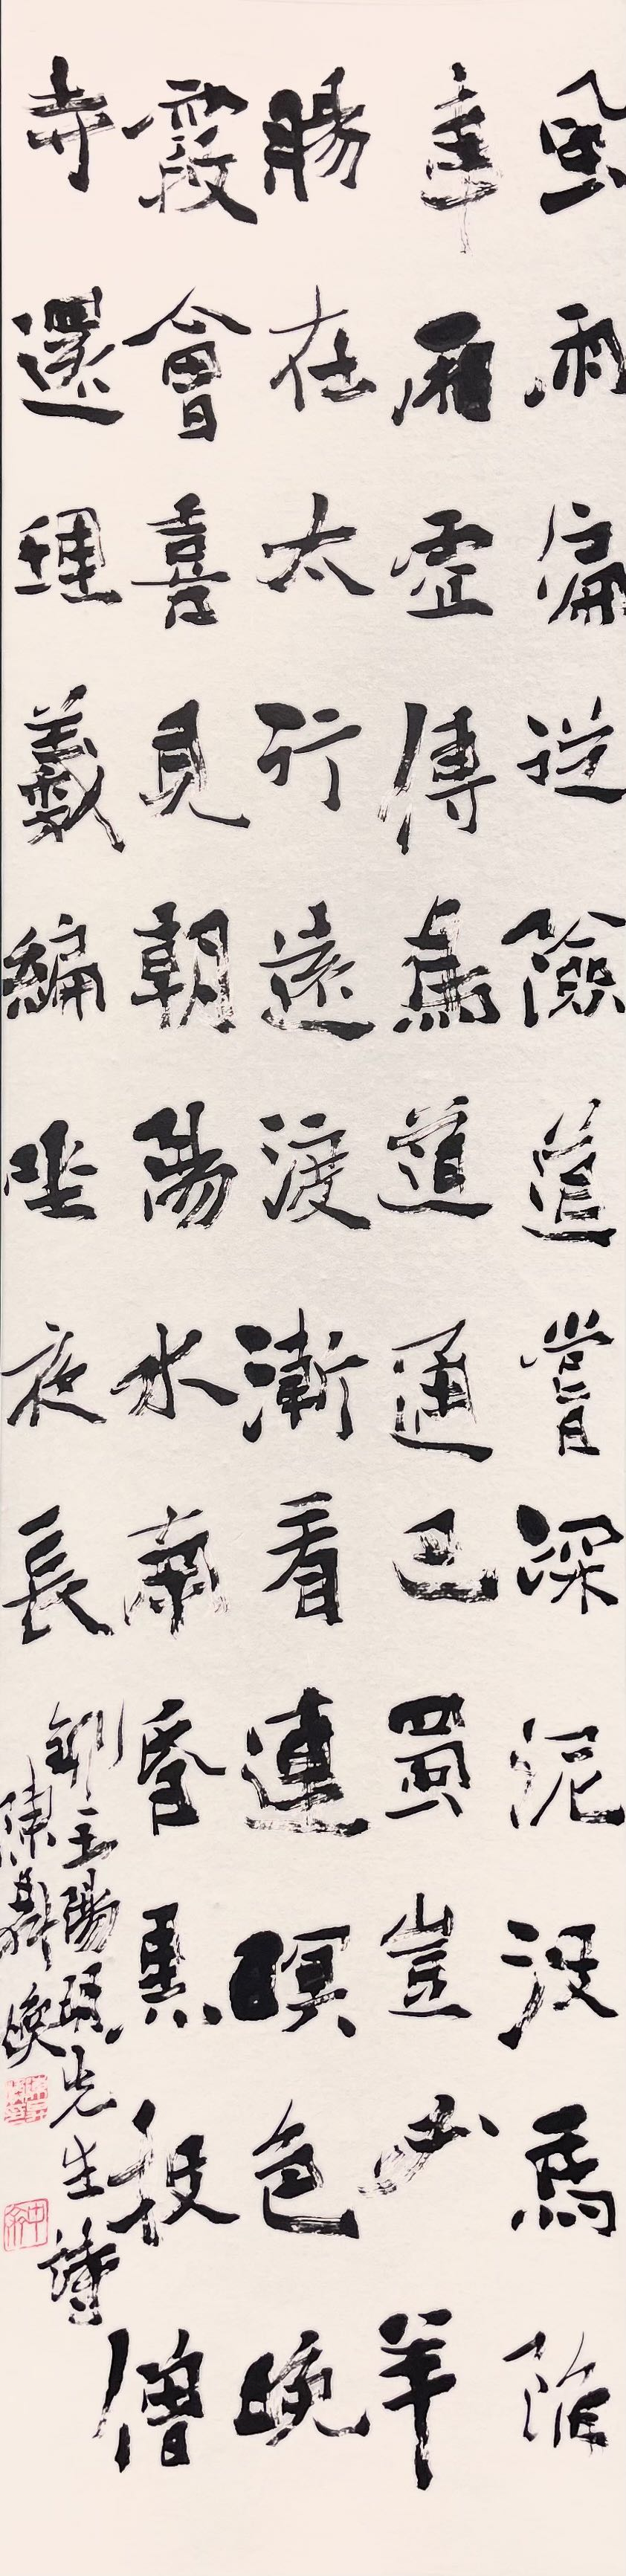 風雨偏從險道嘗深泥沒馬陷
車廂虛傳鳥道通巴蜀豈必羊
腸在太行遠渡漸看連暝色晚
霞會喜見朝陽水南昏黑投僧
寺還理羲編坐夜長
王陽明先生詩
陳